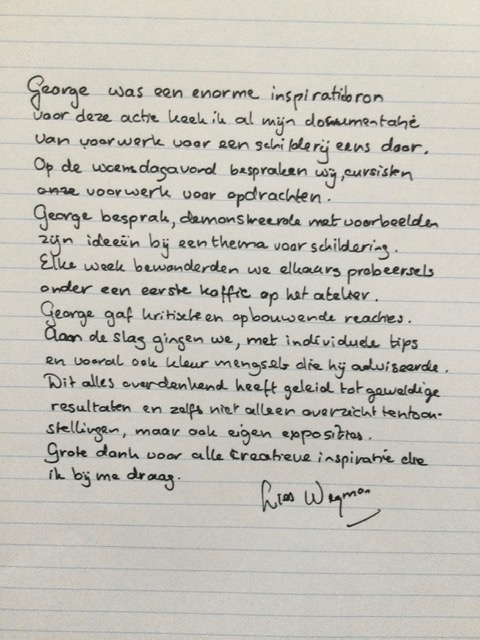 George was een enorme inspiratiebron
voor deze actie keek ik al mijn documentatie
van voorwerk voor een schilderij eens door.
Op de woensdagavond bespraken wij, cursisten
onze voorwerk voor opdrachten.
George besprak, demonstreerde met voorbeelden
zijn ideeën bij een thema voor schildering.
Elke week bewonderden we elkaars probeersels
onder een eerste koffie op het atelier.
George gaf kritische en opbouwende reacties.
Aan de slag gingen we, met individuele tips
en vooral ook kleur mengsels die hij adviseerde.
Dit alles overdenkend heeft geleid tot geweldige
resultaten en zelfs niet alleen overzicht tentoon-
stellingen, maar ook eigen exposities.
Grote dank voor alle creatieve inspiratie die
ik bij me draag.
Lies Wegman